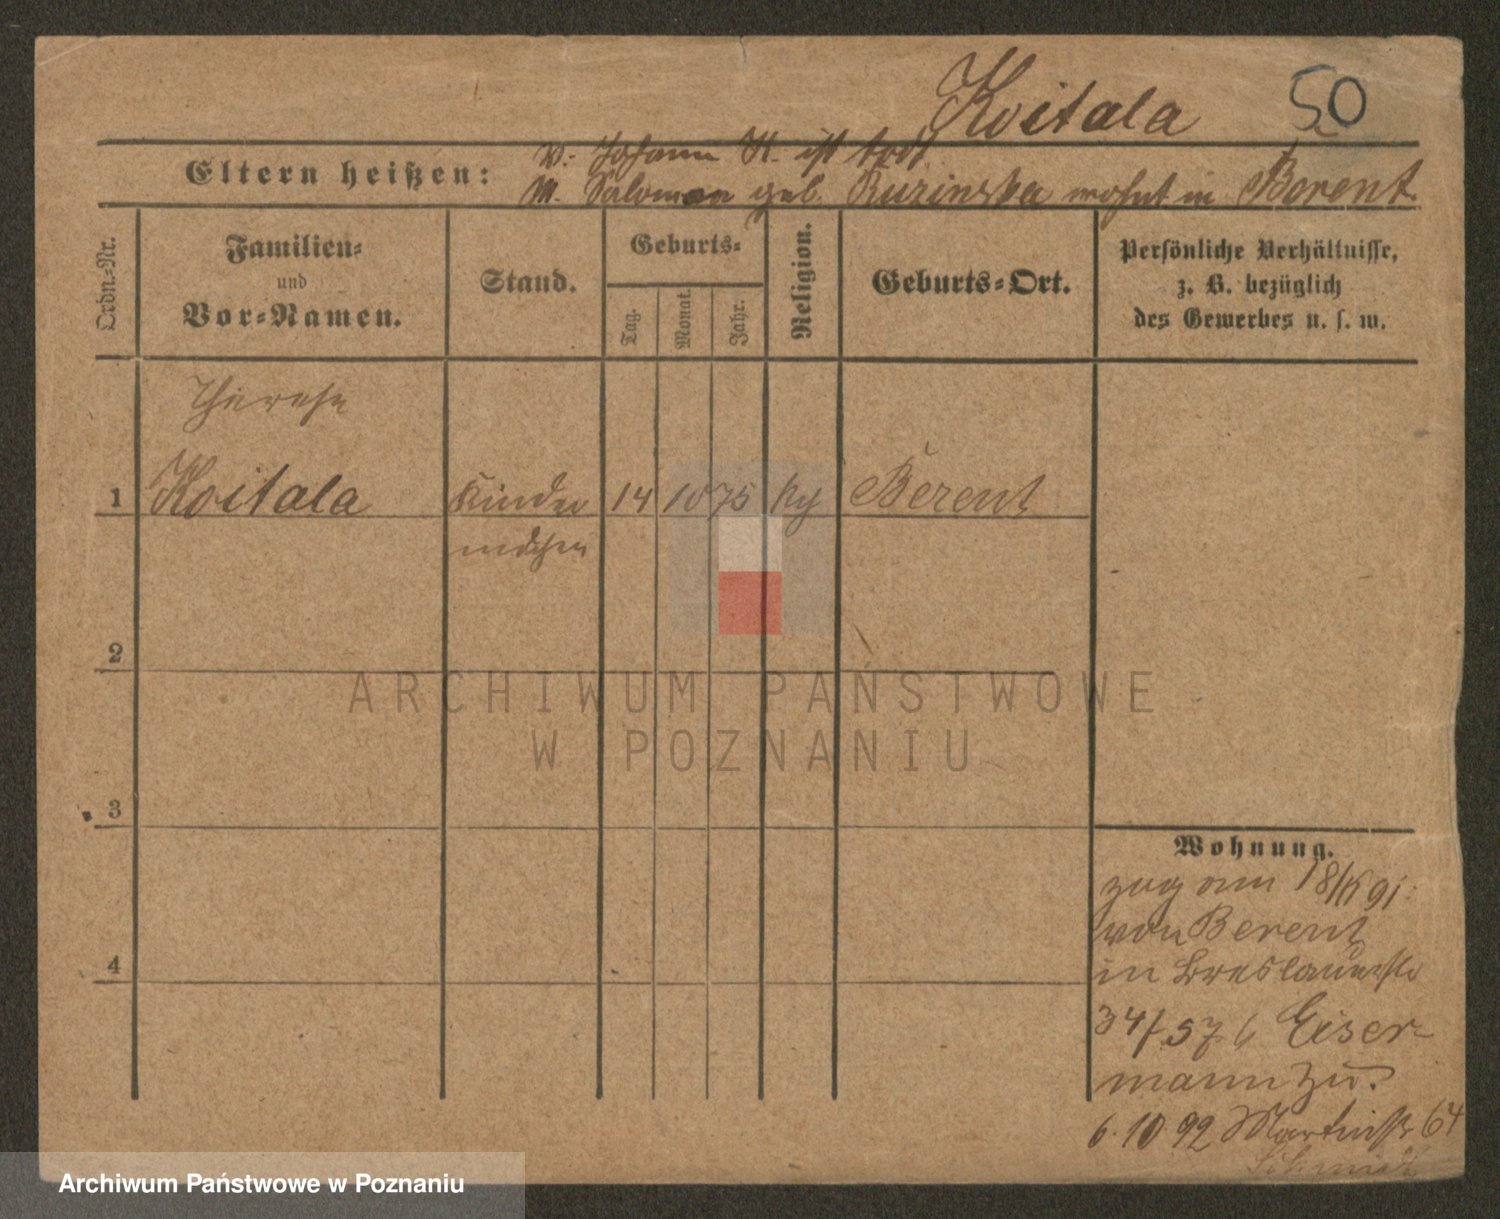 Koitala 50
V. Johann K. ist todt.
Eltern heißen: M. Salomea geb. Ruzinska wohnt in Berent.
Ordn.-Nr.
Familien- und Vor-Namen.
Stand.
Geburts-
Tag. Monat. Jahr.
Religion.
Geburts-Ort.
Persönliche Verhältnisse,
z. B. bezüglich
des Gewerbes u. s. w.
Therese
1 Koitala Kinder 14 10 75 Berent
mdchen
2
3
4
Wohnung.
zug am 18/ 91.
von Berent
in Breslauerstr
34/ Eiser-
mann zu.
6.10.92 Martinstr 64
ARCHIWUM PAŃSTWOWE
W POZNANIU
Archiwum Państwowe w Poznaniu